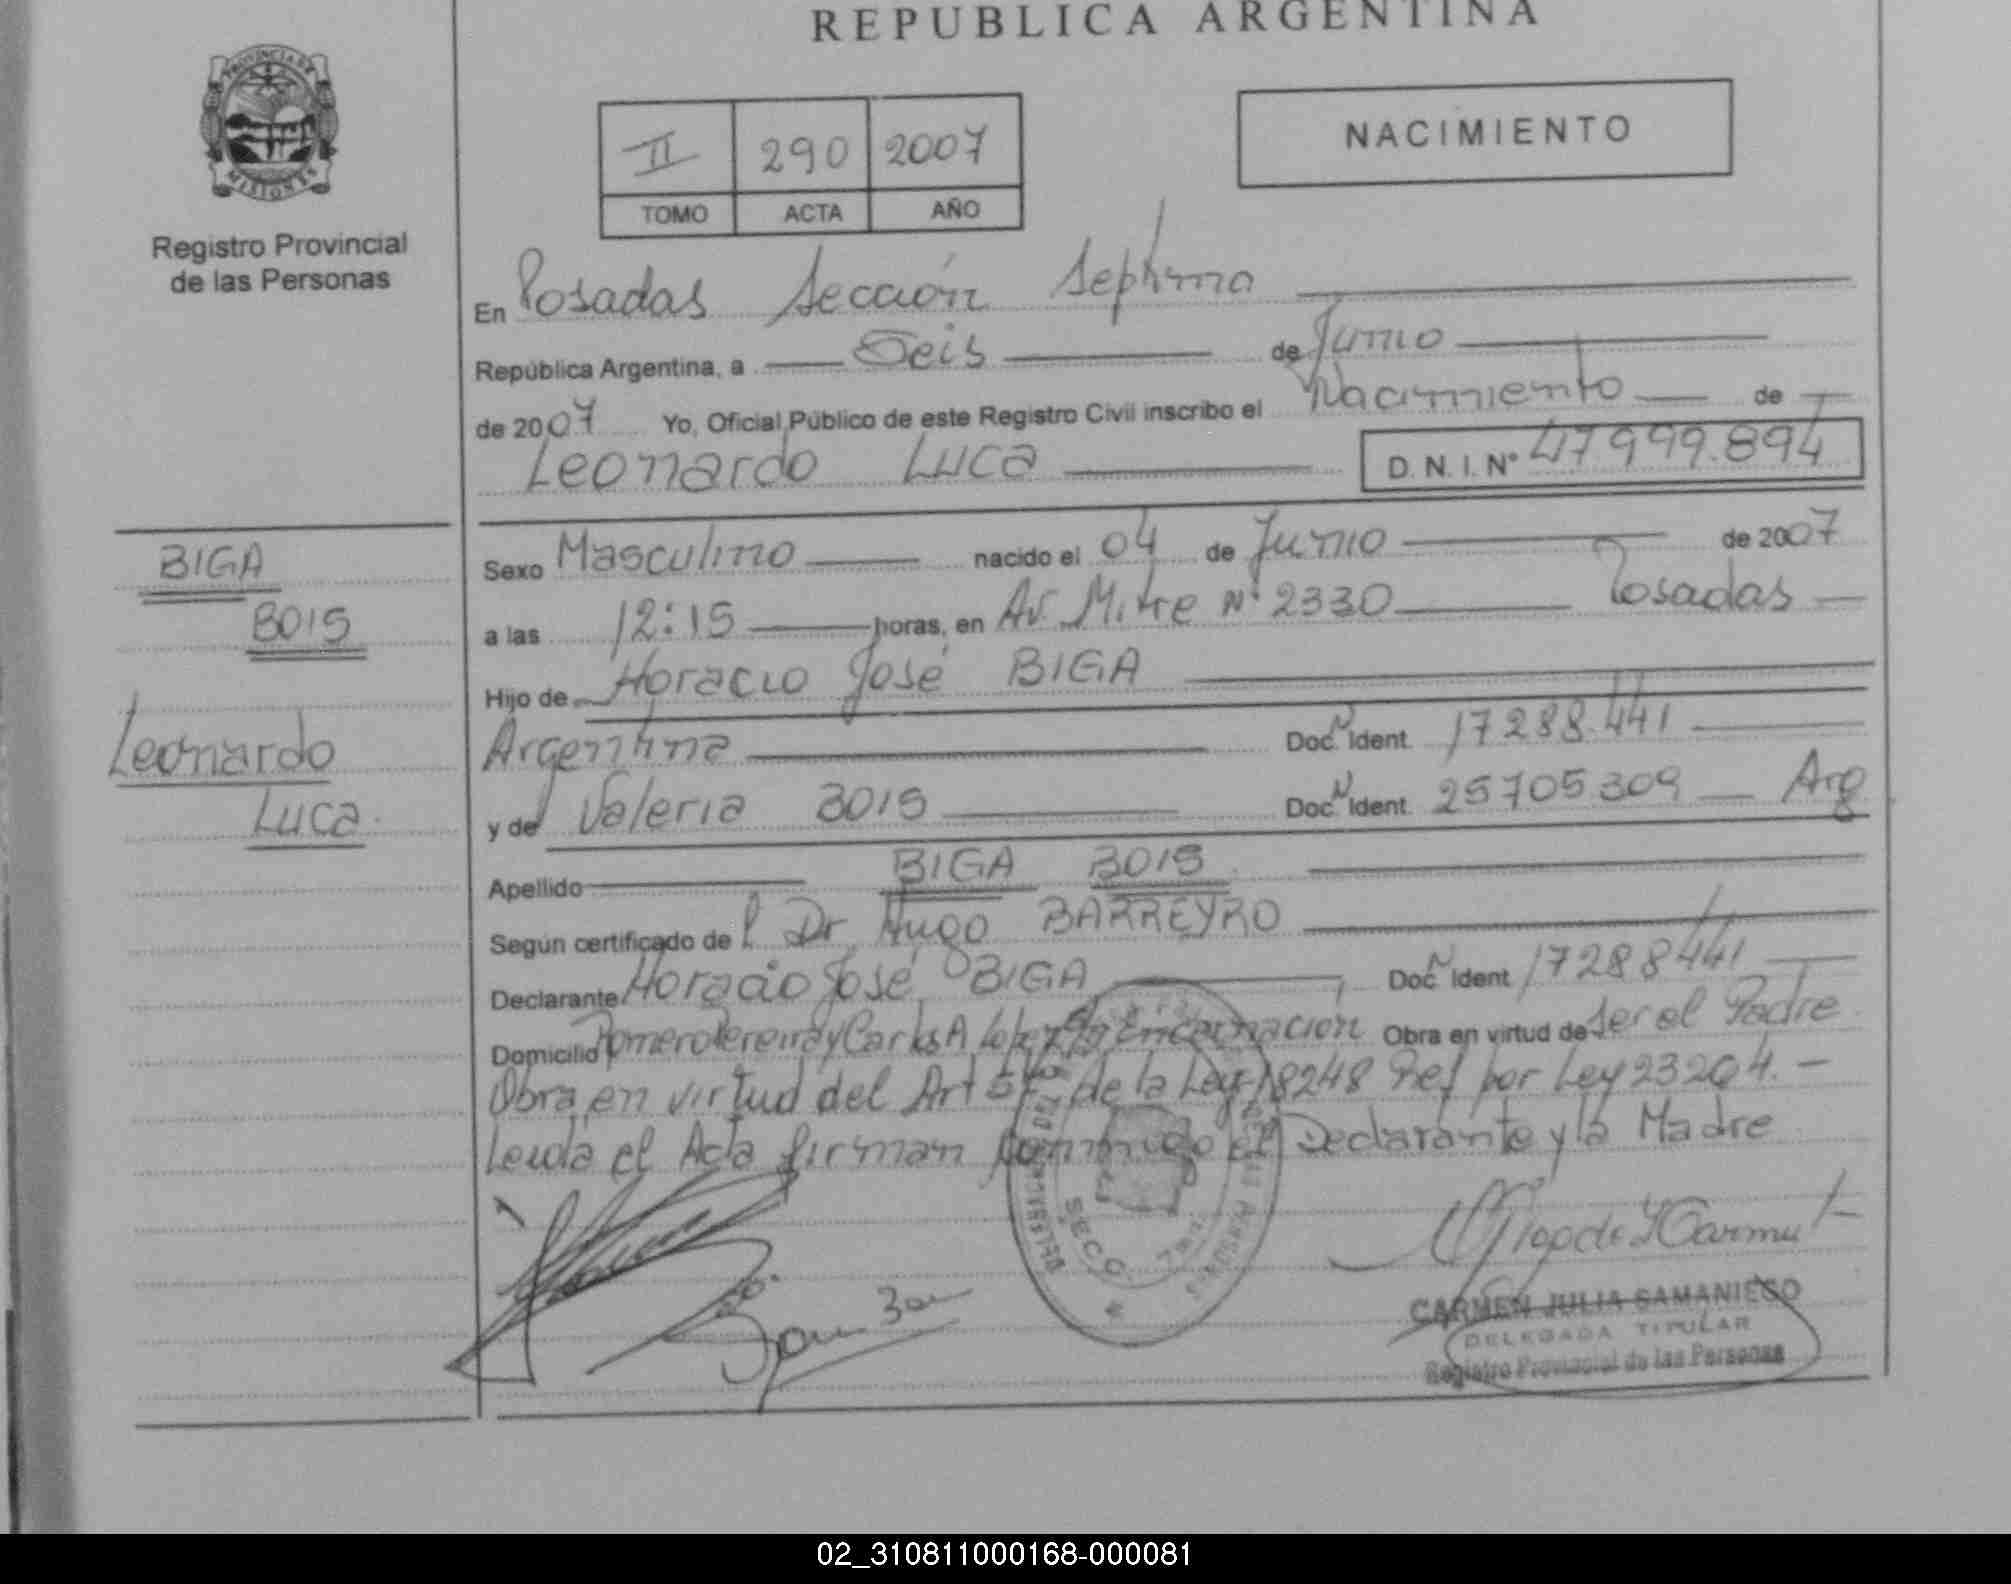 REPUBLICA ARGENTINA
PROVINCIA DE
MISIONES
Registro Provincial
de las Personas
II 290 2007
TOMO ACTA AÑO
NACIMIENTO
En Posadas Sección Septima
República Argentina, a Seis de Junio
de 2007 Yo, Oficial Público de este Registro Civil inscribo el Nacimiento de
Leonardo Luca D.N.I. Nº 47999.894
BIGA
BOIS
Leonardo
Luca
Sexo Masculino nacido el 04 de Junio de 2007
a las 12:15 horas, en Av. Mitre Nº 2330 Posadas
Hijo de Horacio José BIGA
Argentina Doc. Ident. N 17288.441
y de Valeria BOIS Doc. Ident. N 25705309 Arg
Apellido BIGA BOIS
Según certificado de Dr Hugo BARREYRO
Declarante Horacio José BIGA Doc. Ident N 17288441
Domicilio Carlos A. Encarnación Obra en virtud de ser el Padre
Obra en virtud del Art de la Ley 18248 Ref por Ley 23204.-
Leida el Acta firman conmigo el Declarante y la Madre
SECC.
CARMEN JULIA SAMANIEGO
DELEGADA TITULAR
Registro Provincial de las Personas
02_310811000168-000081